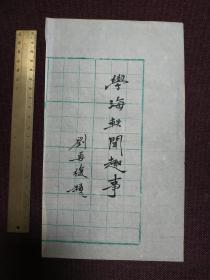 學海軼聞趣事
劉吾復題